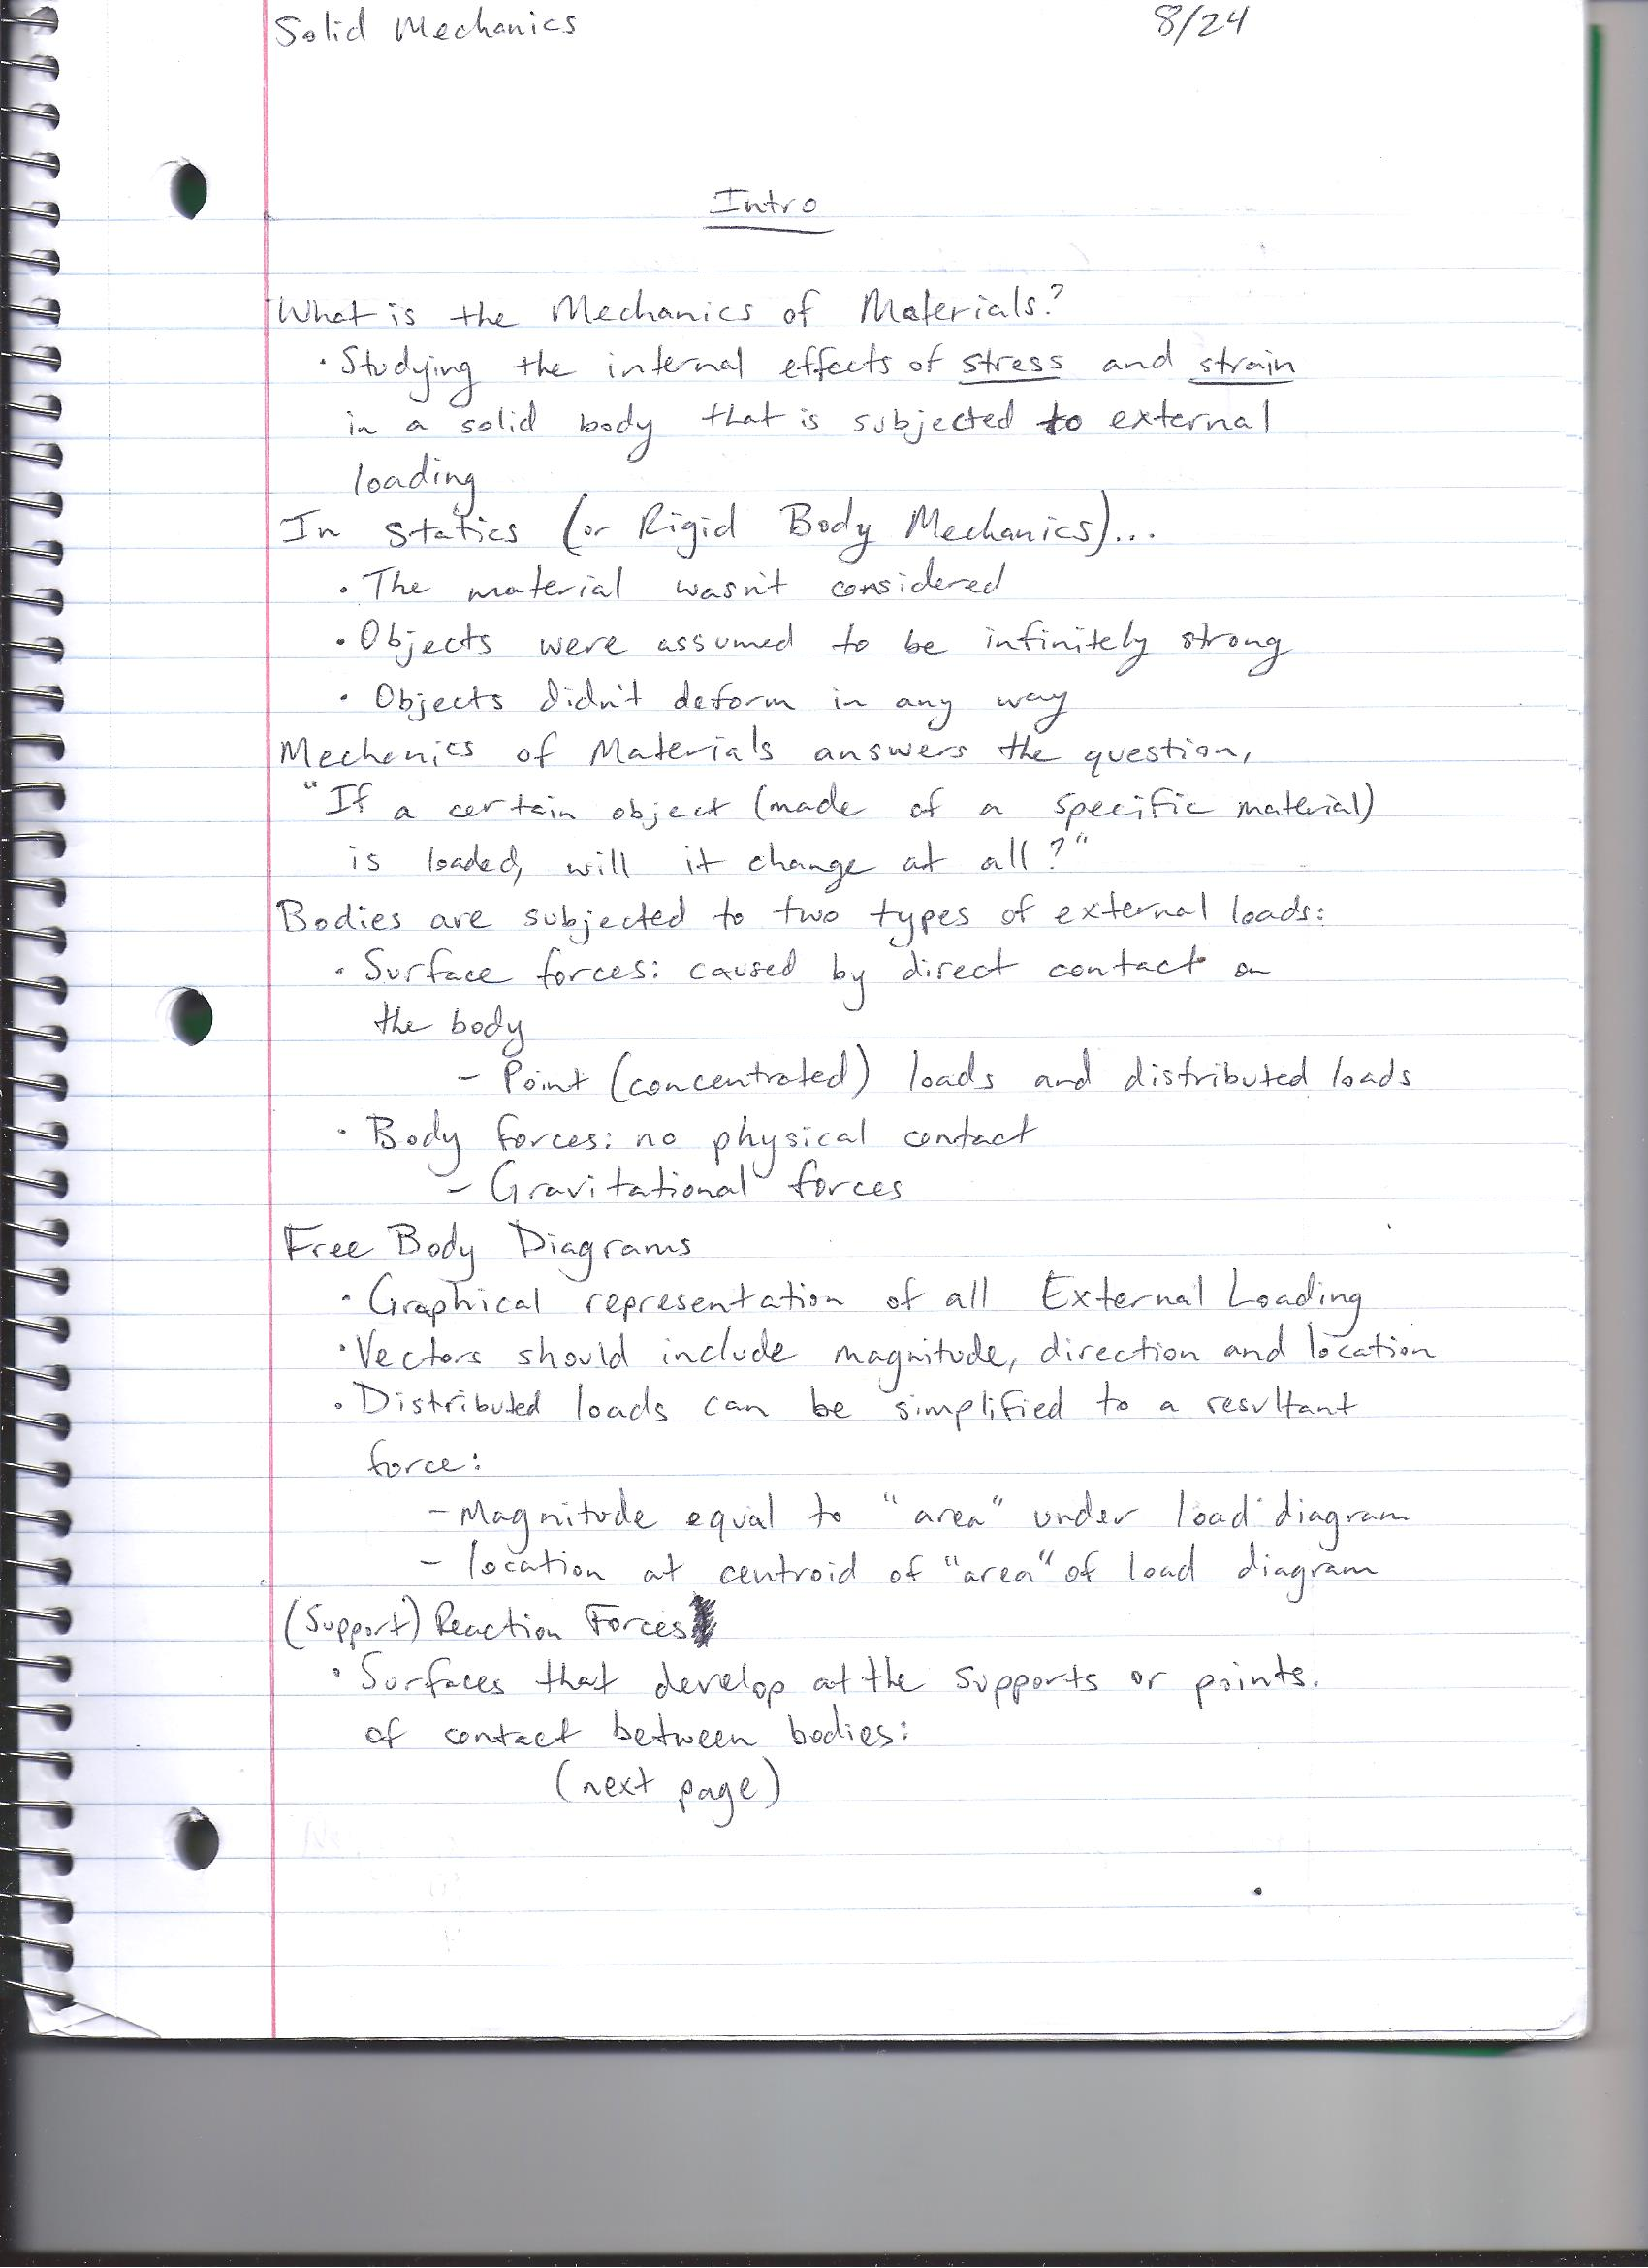 Solid Mechanics 8/24
Intro
What is the Mechanics of Materials?
• Studying the internal effects of stress and strain
in a solid body that is subjected to external
loading
In Statics (or Rigid Body Mechanics)...
• The material wasn't considered
• Objects were assumed to be infinitely strong
• Objects didn't deform in any way
Mechanics of Materials answers the question,
"If a certain object (made of a specific material)
is loaded, will it change at all?"
Bodies are subjected to two types of external loads:
• Surface forces: caused by direct contact on
the body
- Point (concentrated) loads and distributed loads
• Body forces: no physical contact
- Gravitational forces
Free Body Diagrams
• Graphical representation of all External Loading
• Vectors should include magnitude, direction and location
• Distributed loads can be simplified to a resultant
force:
- Magnitude equal to "area" under load diagram
- location at centroid of "area" of load diagram
(Support) Reaction Forces
• Surfaces that develop at the supports or points.
of contact between bodies:
(next page)